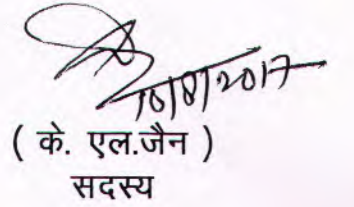 10/8/2017
( के. एल.जैन )
सदस्य